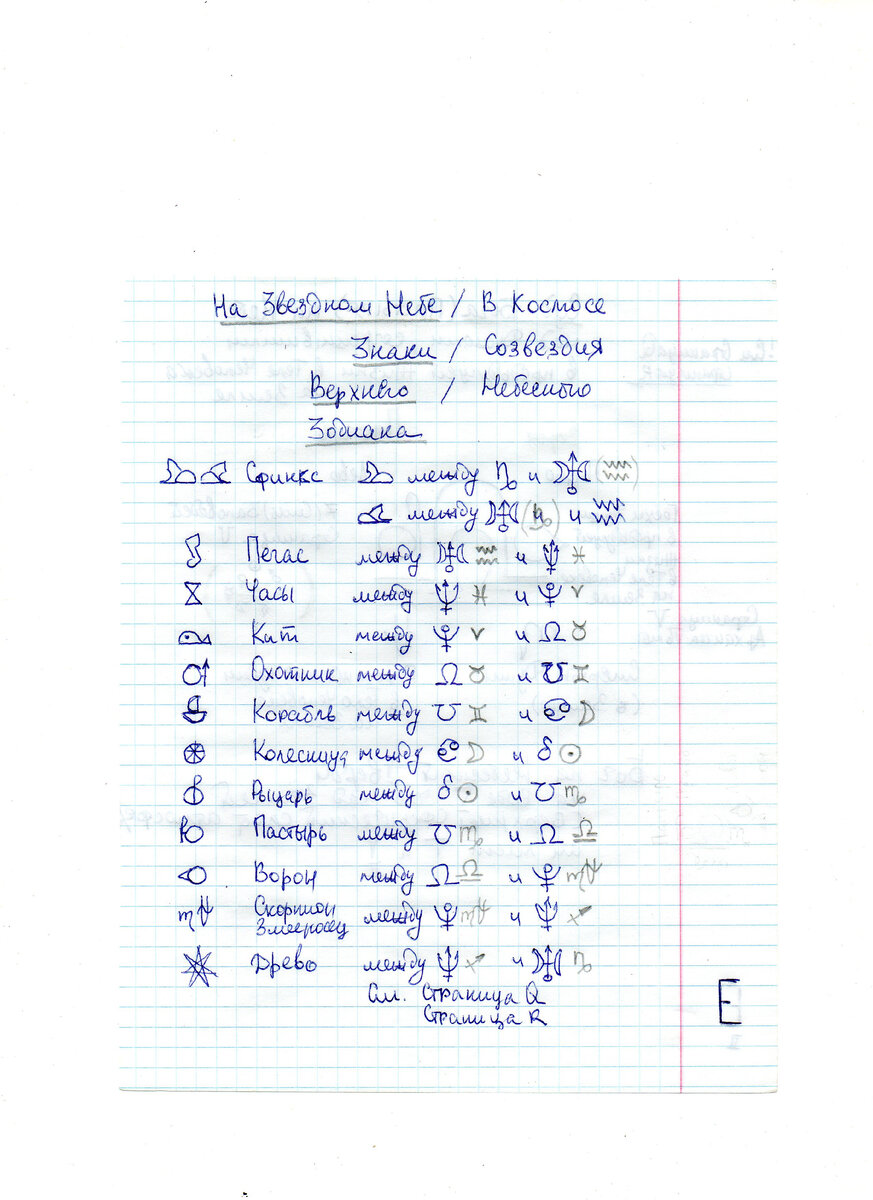 На Звездном Небе / В Космосе
Знаки / Созвездия
Верхнего / Небесного
Зодиака
Сфинкс между ♑ и (♒)
между (♑) и ♒
Пегас между ♒ и ♆ ♓
Часы между ♆ ♓ и ♈
Кит между ♈ и ☊ ♉
Охотник между ☊ ♉ и ☋ ♊
Корабль между ☋ ♊ и ☽
Колесница между ☽ и δ ☉
Рыцарь между δ ☉ и ☋ ♍
Пастырь между ☋ ♍ и ☊ ♎
Ворон между ☊ ♎ и
Скорпион Змееносец между и ♆ ♐
Древо между ♆ ♐ и ♑
См. Страница Q
Страница R
E